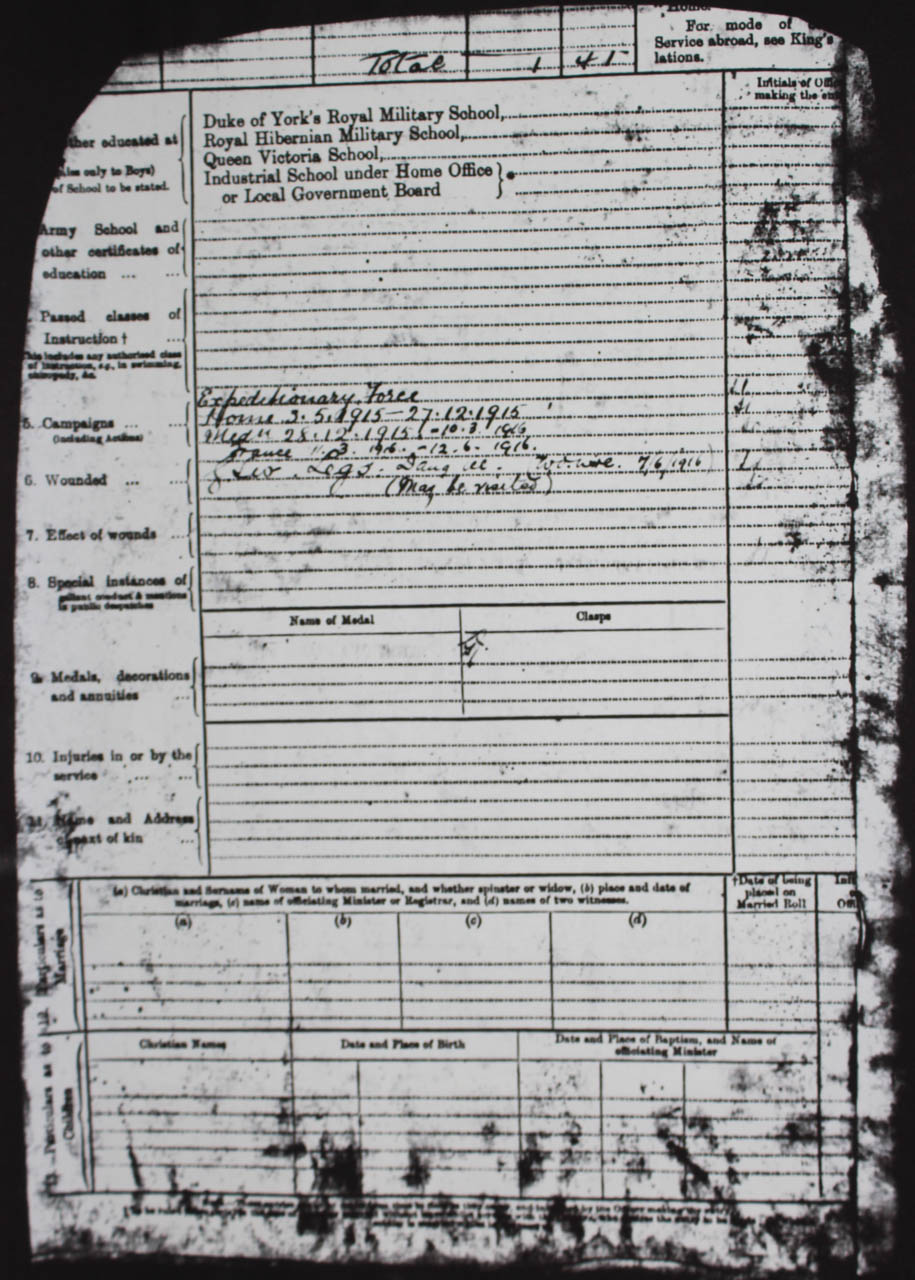 Total 1 41
For mode of
Service abroad, see King's
lations.
Initials of
making the
ther educated at
only to Boys)
of School to be stated.
Duke of York's Royal Military School,
Royal Hibernian Military School,
Queen Victoria School,
Industrial School under Home Office
or Local Government Board
Army School and
other certificates of
education ...
Passed classes of
Instruction †
This includes any authorised class
of instruction, e.g., in swimming,
chiropody, &c.
Expeditionary Force
5. Campaigns ...
(including Actions)
Home 3.5.1915–27.12.1915
Med" 28.12.1915 – 10.3.1916
France 11.3.1916 – 12.6.1916.
6. Wounded ...
Legs. 7/6/1916)
(May be visited)
7. Effect of wounds ...
8. Special instances of
gallant conduct & mentions
in public despatches
Name of Medal
Clasps
9. Medals, decorations
and annuities ...
10. Injuries in or by the
service ... ...
11. Name and Address
of next of kin ...
(a) Christian and Surname of Woman to whom married, and whether spinster or widow, (b) place and date of
marriage, (c) name of officiating Minister or Registrar, and (d) names of two witnesses.
†Date of being
placed on
Married Roll
(a) (b) (c) (d)
Particulars as to
Marriage
Christian Names
Date and Place of Birth
Date and Place of Baptism, and Name of
officiating Minister
Particulars as to
Children